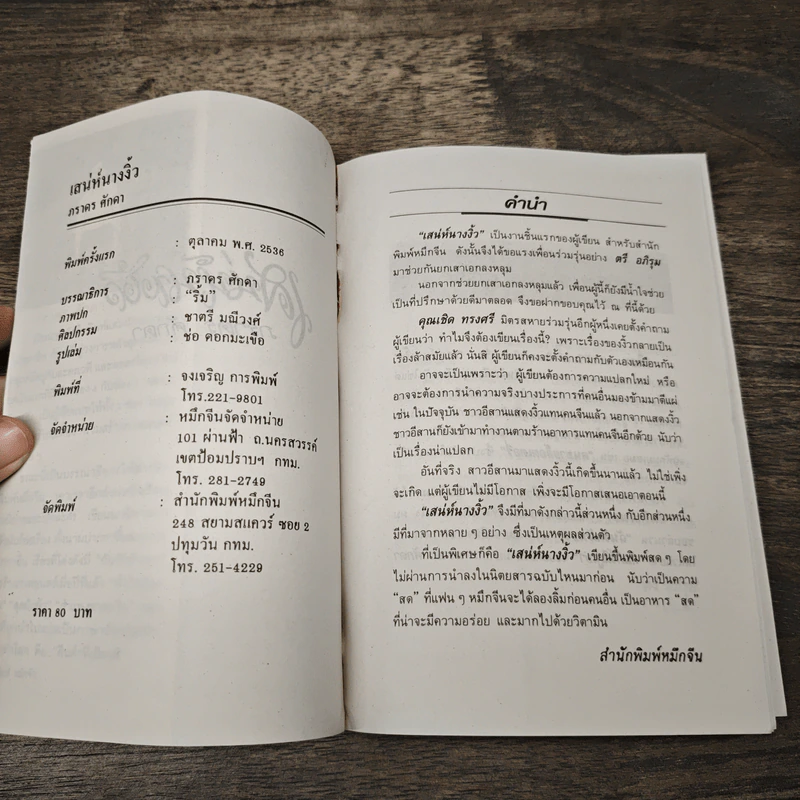 เสน่ห์นางงิ้ว
ภราดร ศักดา
พิมพ์ครั้งแรก : ตุลาคม พ.ศ. 2536
บรรณาธิการ : ภราดร ศักดา
ภาพปก : "ริ้ม"
ศิลปกรรม : ชาตรี มณีวงศ์
รูปเล่ม : ช่อ ดอกมะเขือ
พิมพ์ที่ : จงเจริญ การพิมพ์
โทร.221-9801
จัดจำหน่าย : หมึกจีนจัดจำหน่าย
101 ผ่านฟ้า ถ.นครสวรรค์
เขตป้อมปราบฯ กทม.
โทร. 281-2749
จัดพิมพ์ : สำนักพิมพ์หมึกจีน
248 สยามสแควร์ ซอย 2
ปทุมวัน กทม.
โทร. 251-4229
ราคา 80 บาท
คำนำ
"เสน่ห์นางงิ้ว" เป็นงานชิ้นแรกของผู้เขียน สำหรับสำนัก
พิมพ์หมึกจีน ดังนั้นจึงได้ขอแรงเพื่อนร่วมรุ่นอย่าง ตรี อภิรุม
มาช่วยกันยกเสาเอกลงหลุม
นอกจากช่วยยกเสาเอกลงหลุมแล้ว เพื่อนผู้นี้ก็ยังมีน้ำใจช่วย
เป็นที่ปรึกษาด้วยดีมาตลอด จึงขอฝากขอบคุณไว้ ณ ที่นี้ด้วย
คุณเชิด ทรงศรี มิตรสหายร่วมรุ่นอีกผู้หนึ่งเคยตั้งคำถาม
ผู้เขียนว่า ทำไมจึงต้องเขียนเรื่องนี้? เพราะเรื่องของงิ้วกลายเป็น
เรื่องล้าสมัยแล้ว นั่นสิ ผู้เขียนก็คงจะตั้งคำถามกับตัวเองเหมือนกัน
อาจจะเป็นเพราะว่า ผู้เขียนต้องการความแปลกใหม่ หรือ
อาจจะต้องการนำความจริงบางประการที่คนอื่นมองข้ามมาตีแผ่
เช่น ในปัจจุบัน ชาวอีสานแสดงงิ้วแทนคนจีนแล้ว นอกจากแสดงงิ้ว
ชาวอีสานก็ยังเข้ามาทำงานตามร้านอาหารแทนคนจีนอีกด้วย นับว่า
เป็นเรื่องน่าแปลก
อันที่จริง สาวอีสานมาแสดงงิ้วนี้เกิดขึ้นนานแล้ว ไม่ใช่เพิ่ง
จะเกิด แต่ผู้เขียนไม่มีโอกาส เพิ่งจะมีโอกาสเสนอเอาตอนนี้
"เสน่ห์นางงิ้ว" จึงมีที่มาดังกล่าวนี้ส่วนหนึ่ง กับอีกส่วนหนึ่ง
มีที่มาจากหลาย ๆ อย่าง ซึ่งเป็นเหตุผลส่วนตัว
ที่เป็นพิเศษก็คือ "เสน่ห์นางงิ้ว" เขียนขึ้นพิมพ์สด ๆ โดย
ไม่ผ่านการนำลงในนิตยสารฉบับไหนมาก่อน นับว่าเป็นความ
"สด" ที่แฟน ๆ หมึกจีนจะได้ลองลิ้มก่อนคนอื่น เป็นอาหาร "สด"
ที่น่าจะมีความอร่อย และมากไปด้วยวิตามิน
สำนักพิมพ์หมึกจีน